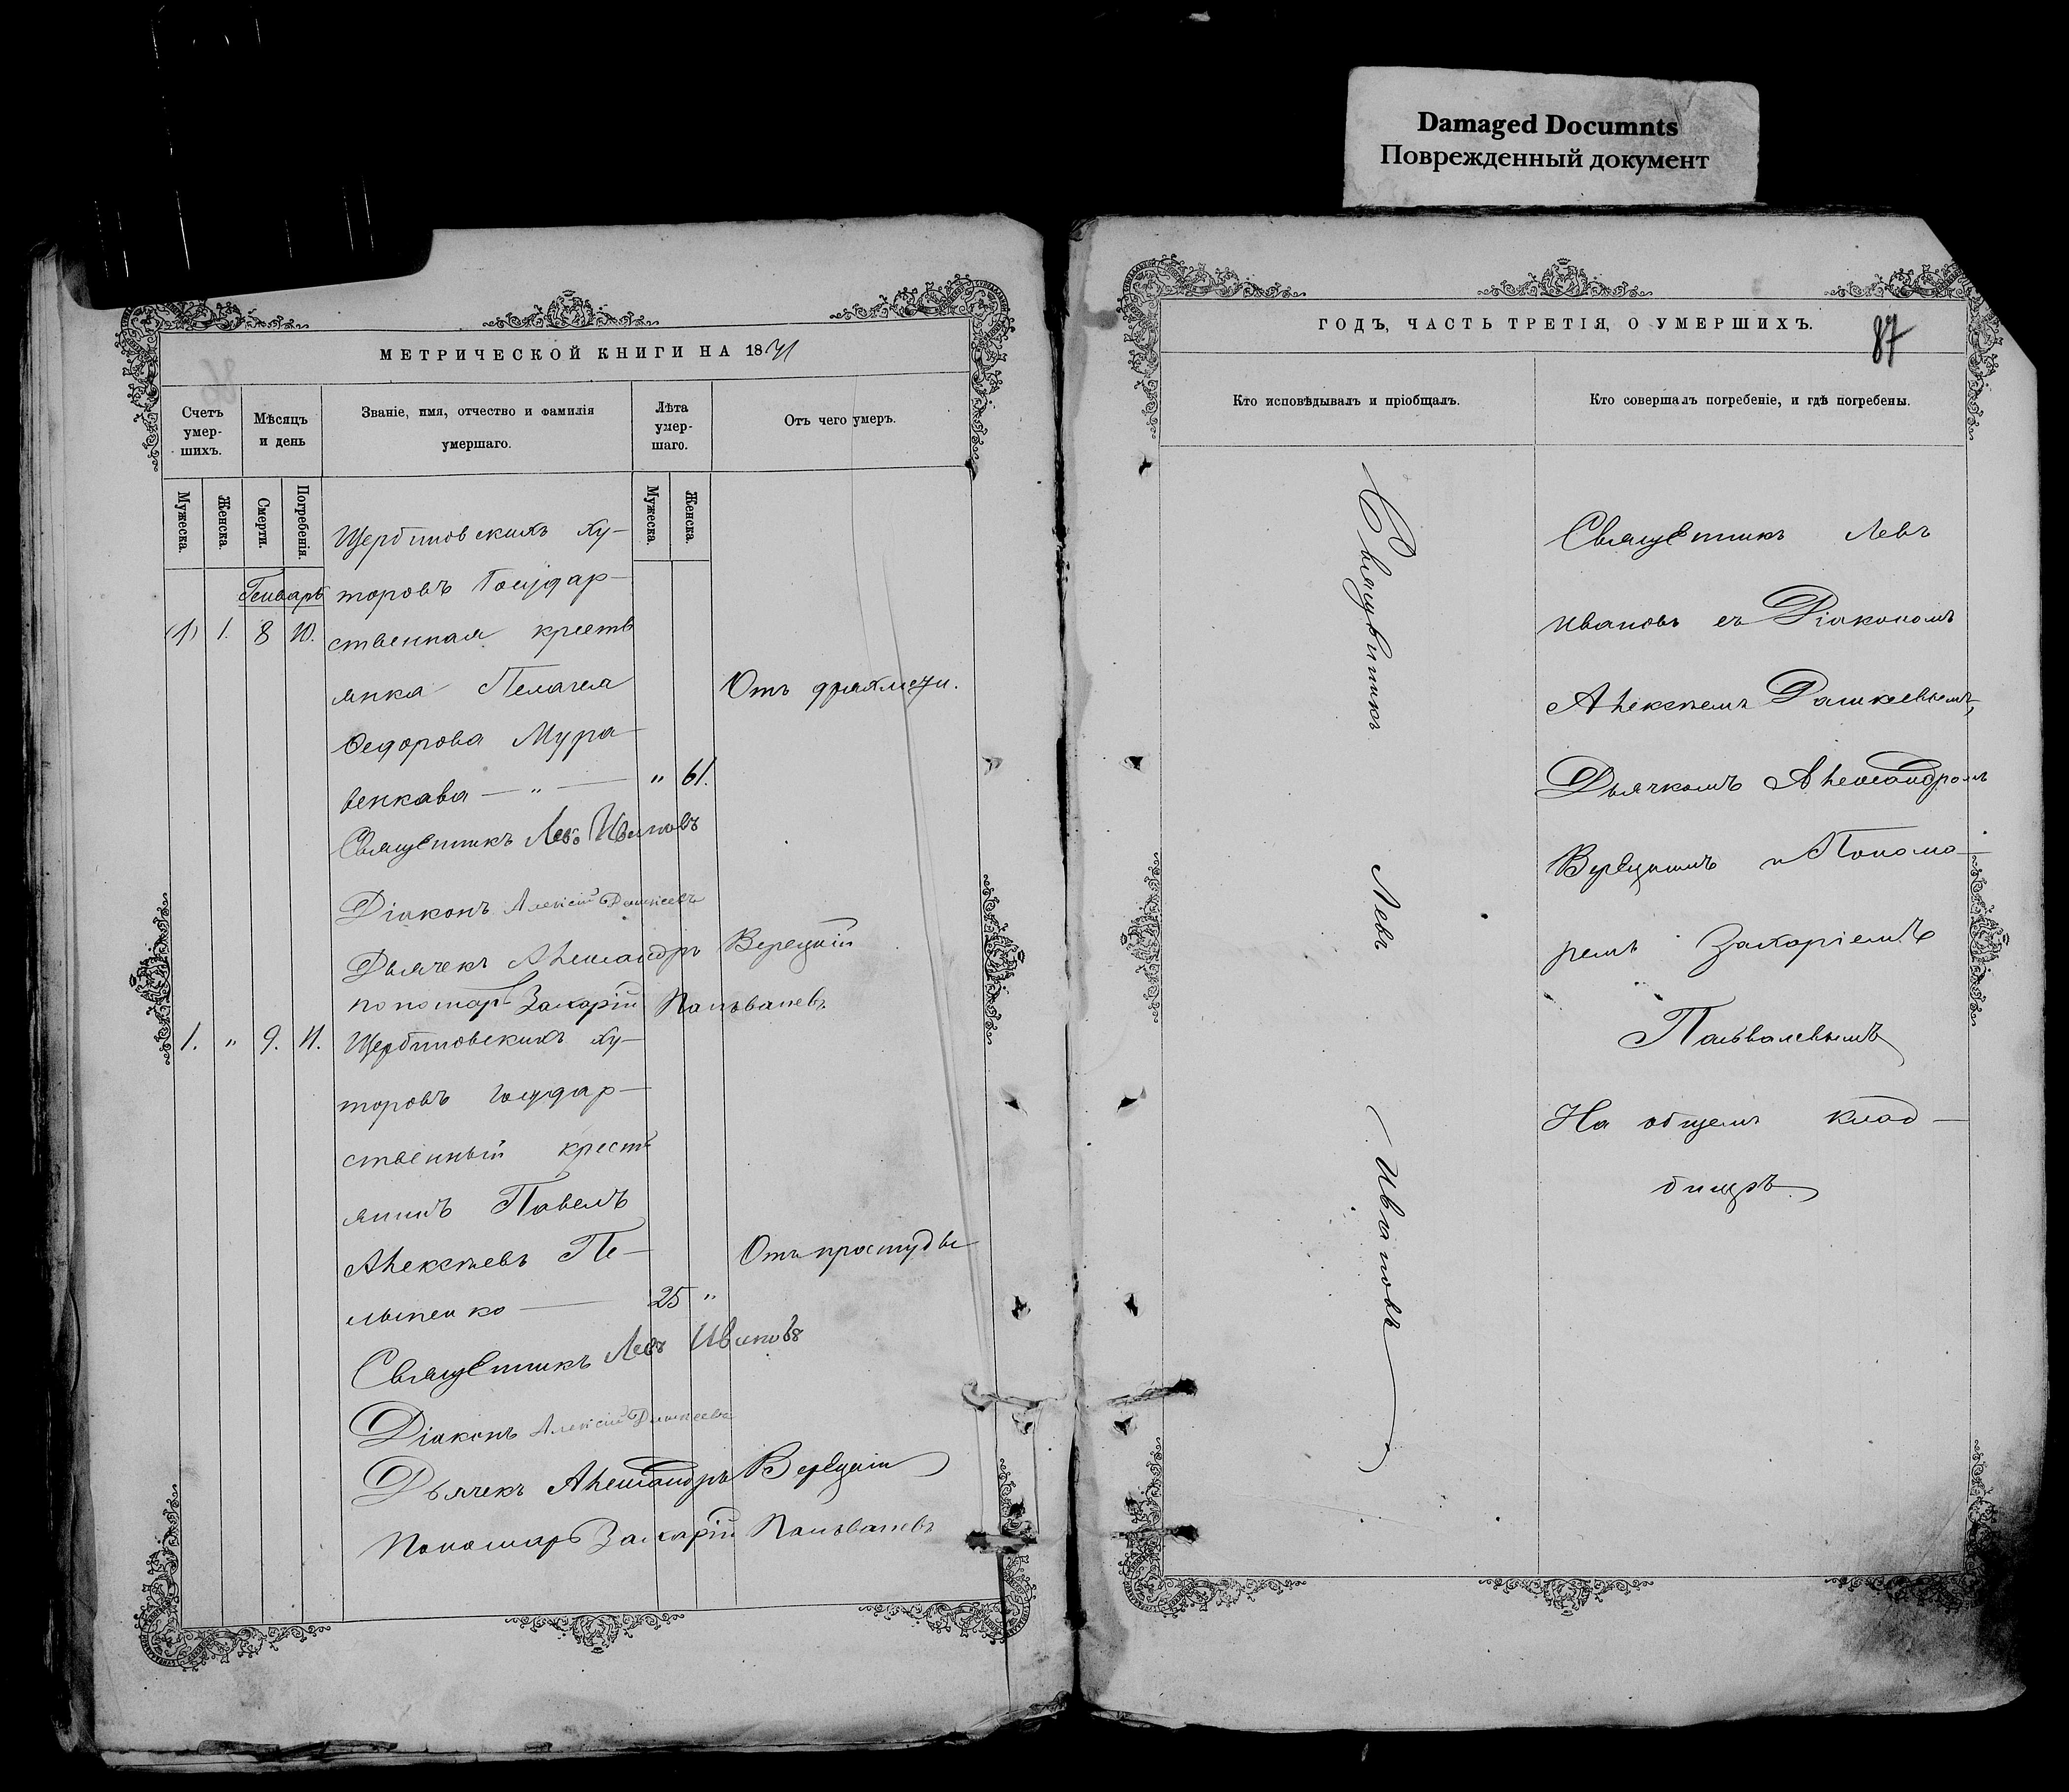 Damaged Documnts
Поврежденный документ
МЕТРИЧЕСКОЙ КНИГИ НА 1871
Счетъ умер-шихъ.
Мѣсяцъ и день
Званіе, имя, отчество и фамилія умершаго.
Лѣта умер-шаго.
Отъ чего умеръ.
Мужеска.
Женска.
Смерти.
Погребенія.
Мужеска.
Женска.
Щербиновскихъ ху-
Генварь
торовъ Государ-
(1) 1. 8 10.
ственная кресть
янка Пелагея
Отъ дряхлости.
Федорова Мура-
венкава — „ — „ 61.
Священникъ Левъ Ивановъ
Діаконъ Алексій Дашкеевъ
Дьячекъ Александръ Верецкій
пономарь Захарій
1. „ 9. 11. Щербиновскихъ ху-
торовъ государ-
ственный кресть
янинъ Павелъ
Алексѣевъ Пе-
Отъ простуды
25 „
Священникъ Левъ Ивановъ
Діаконъ Алексій Дашкеевъ
Дьячекъ Александръ Верецкій
Пономарь Захарій
ГОДЪ, ЧАСТЬ ТРЕТІЯ, О УМЕРШИХЪ.
87
Кто исповѣдывалъ и пріобщалъ.
Кто совершалъ погребеніе, и гдѣ погребены.
Священникъ Левъ Ивановъ
Священникъ Левъ
Ивановъ съ Діакономъ
Алексѣемъ Дашкеевымъ,
Дьячкомъ Александромъ
Верецкимъ и Понома-
ремъ Захаріемъ
На общемъ клад-
бищѣ